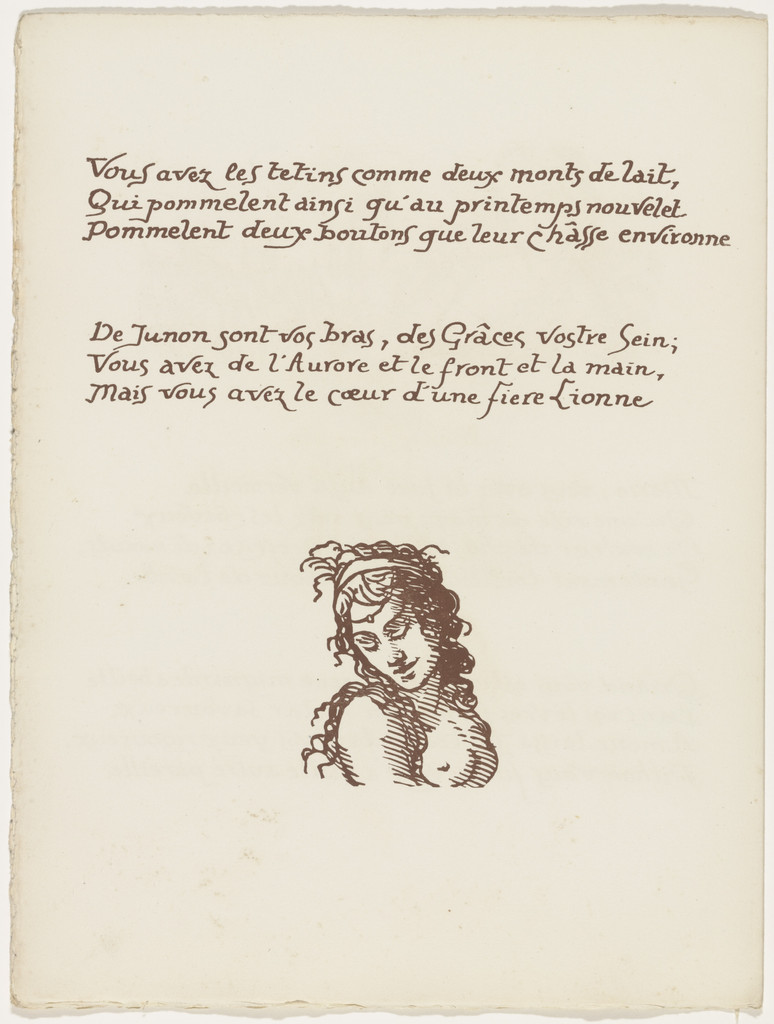 Vous avez les tetins comme deux monts de lait,
Qui pommelent ainsi qu'au printemps nouvelet
Pommelent deux boutons que leur châsse environne
De Junon sont vos bras, des Grâces vostre Sein;
Vous avez de l'Aurore et le front et la main,
Mais vous avez le cœur d'une fiere Lionne